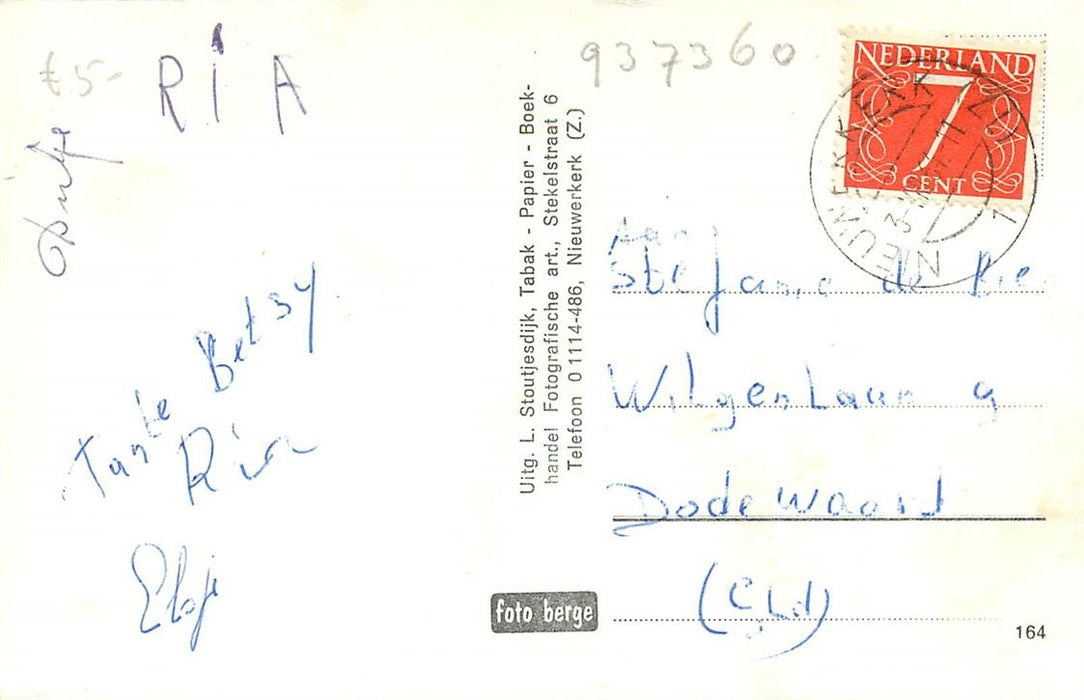 €5-
RIA
937360
NEDERLAND
7
CENT
NIEUWERKERK ZLD
1
Uitg. L. Stoutjesdijk, Tabak - Papier - Boek-
handel Fotografische art., Stekelstraat 6
Telefoon 01114-486, Nieuwerkerk (Z.)
Aan
Stefanie de
Wilgenlaan 9
Dodewaard
(Gld)
Tante Betsy
Ria
foto berge
164